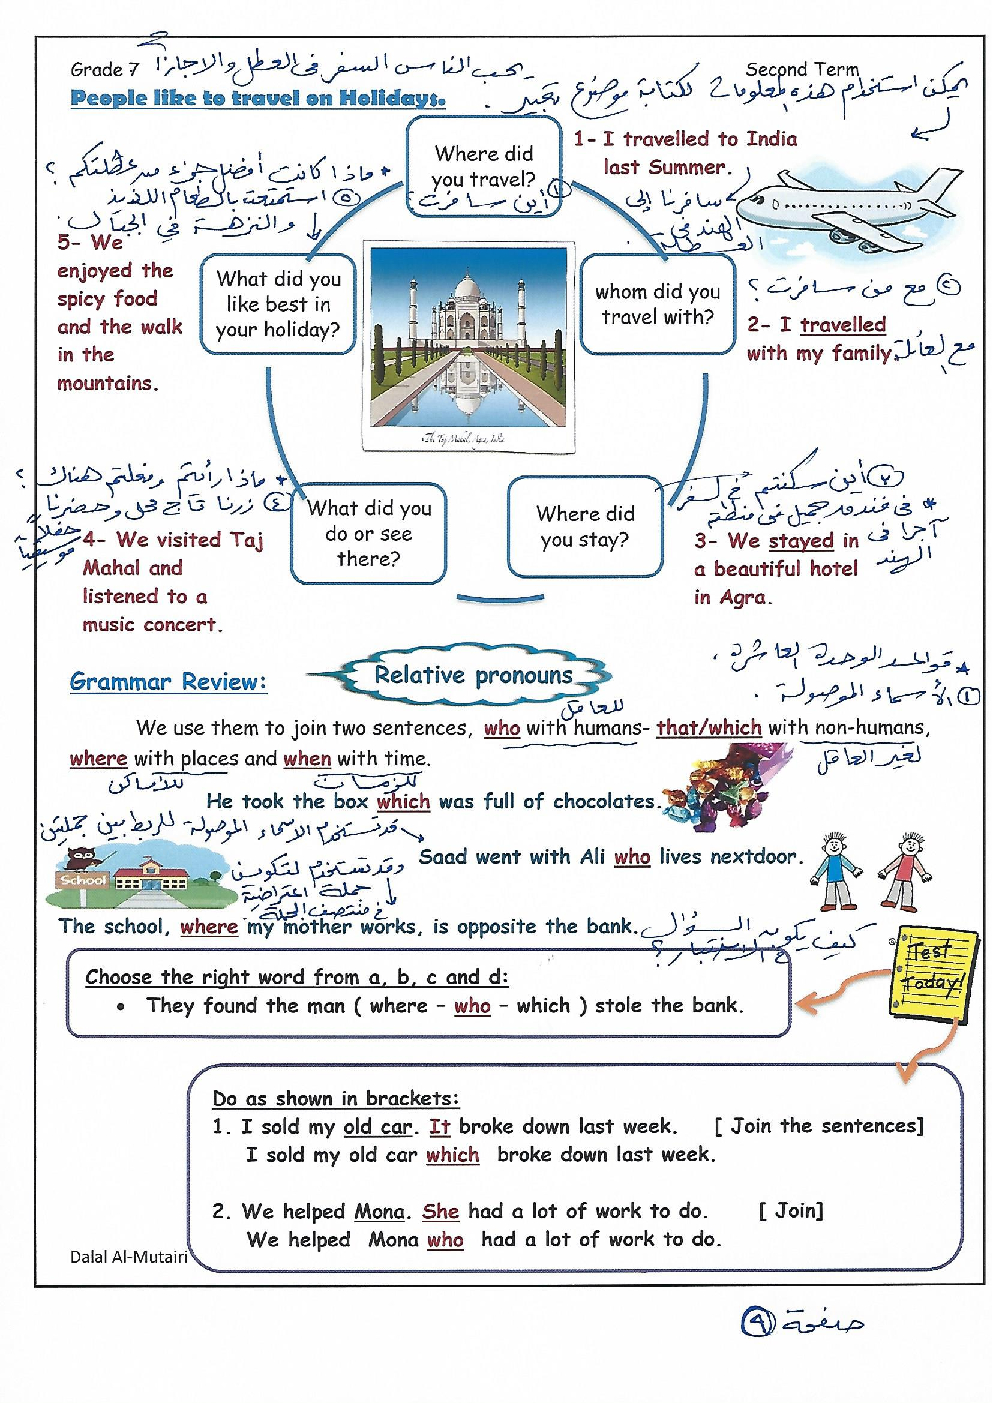 Grade 7
يحب الناس السفر في العطل والاجازات
Second Term
People like to travel on Holidays.
يمكن استخدام هذه المعلومات لكتابة موضوع تعبير.
Where did
you travel?
١ أين سافرت
1- I travelled to India
last Summer.
سافرنا إلى
الهند في
العطلة
* ماذا كانت أفضل جزء من عطلتكم ؟
٥ استمتعت بالطعام اللذيذ
والنزهة في الجبال.
5- We
enjoyed the
spicy food
and the walk
in the
mountains.
What did you
like best in
your holiday?
whom did you
travel with?
٢ مع من سافرت ؟
2- I travelled
with my family.
مع لعائلة
The Taj Mahal, Agra, India
* ماذا رأيتم وفعلتم هناك ؟
٤ زرنا تاج محل وحضرنا
حفلات
موسيقيا
4- We visited Taj
Mahal and
listened to a
music concert.
What did you
do or see
there?
Where did
you stay?
٣ أين سكنتم في السفر
* في فندق جميل في منطقة
آجرا في
الهند
3- We stayed in
a beautiful hotel
in Agra.
* قواعد الوحدة العاشرة.
١ الأسماء الموصولة.
Grammar Review:
Relative pronouns
للعاقل
We use them to join two sentences, who with humans- that/which with non-humans,
لغير العاقل
where with places and when with time.
للأماكن
للزمان
He took the box which was full of chocolates.
قد تستخدم الاسماء الموصولة للربط بين جملتين
Saad went with Ali who lives nextdoor.
وقد تستخدم لتكوين
جملة اعتراضية
في منتصف الجملة
School
The school, where my mother works, is opposite the bank.
كيف يكون السؤال
في الاختبار ؟
Test
Today!
Choose the right word from a, b, c and d:
• They found the man ( where – who – which ) stole the bank.
Do as shown in brackets:
1. I sold my old car. It broke down last week. [ Join the sentences]
I sold my old car which broke down last week.
2. We helped Mona. She had a lot of work to do. [ Join]
We helped Mona who had a lot of work to do.
Dalal Al-Mutairi
صفحة ٩